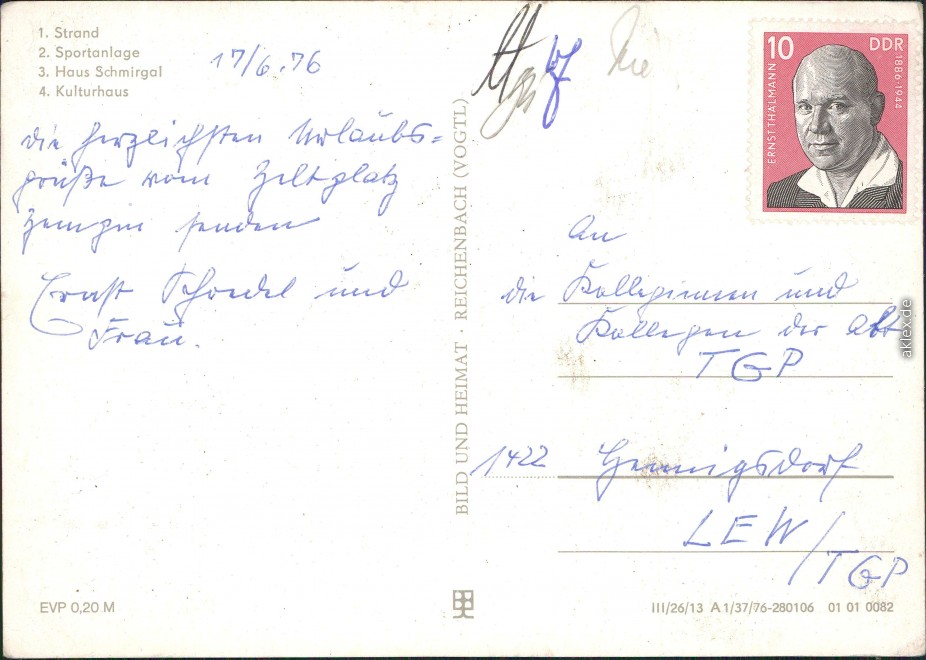 1. Strand
2. Sportanlage
3. Haus Schmirgal
4. Kulturhaus
17/6.76
die herzlichsten Urlaubs=
grüße vom Zeltplatz
Zempin senden
Ernst und
Frau.
BILD UND HEIMAT · REICHENBACH (VOGTL)
EVP 0,20 M
10 DDR
ERNST THÄLMANN
1886-1944
An
die Kolleginnen und
Kollegen der Abt
TGP
1422 Hennigsdorf
LEW/
TGP
III/26/13 A 1/37/76-280106 01 01 0082
aklex.de